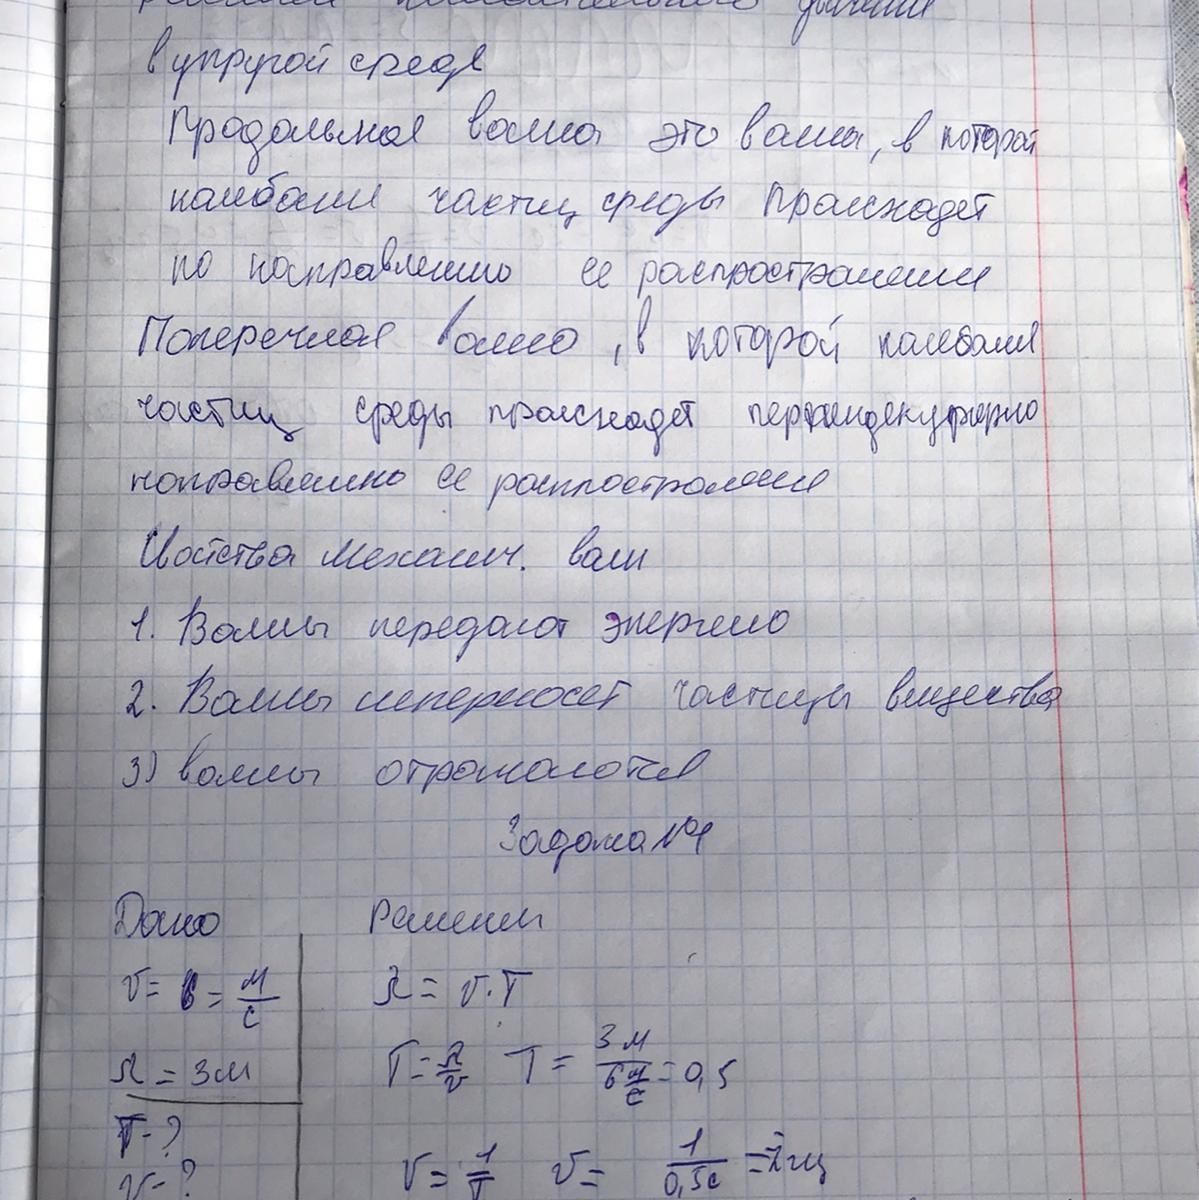 в упругой среде
Продольная волна это волна, в которой
колебание частиц среды происходет
по направлению ее распространения
Поперечная волна, в которой колебания
частиц среды происходет перпендекулярно
направлению ее распространения
Свойства механич. волн
1. Волны передают энергию
2. Волны непереносет частицы вещества
3) волны отрожаются
Задача №1
Дано Решение
v = 6 = м/с λ = v · T
λ = 3м T = λ/v T = 3 м / 6 м/с = 0,5
T - ?
ν - ? ν = 1/T ν = 1/0,5с = 2 гц